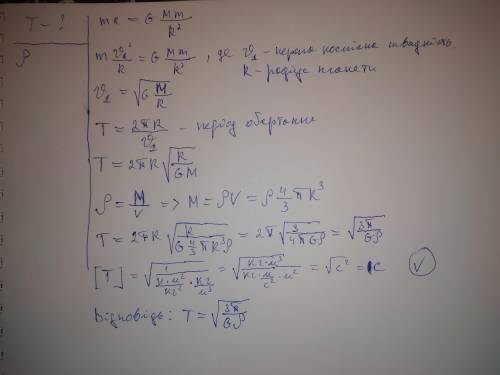 T - ?
ρ
ma = G Mm/R²
m v₁²/R = G Mm/R², де v₁ - перша космічна швидкість.
R - радіус планети
v₁ = √(G M/R)
T = 2πR/v₁ - період обертання
T = 2πR √(R/GM)
ρ = M/V => M = ρV = ρ 4/3 πR³
T = 2πR √(R/(G 4/3 πR³ρ)) = 2π √(3/(4πGρ)) = √(3π/Gρ)
[T] = √(1/(Н·м²/кг² · кг/м³)) = √(кг·м³/(кг·м/с² · м²)) = √с² = с
Відповідь: T = √(3π/Gρ)